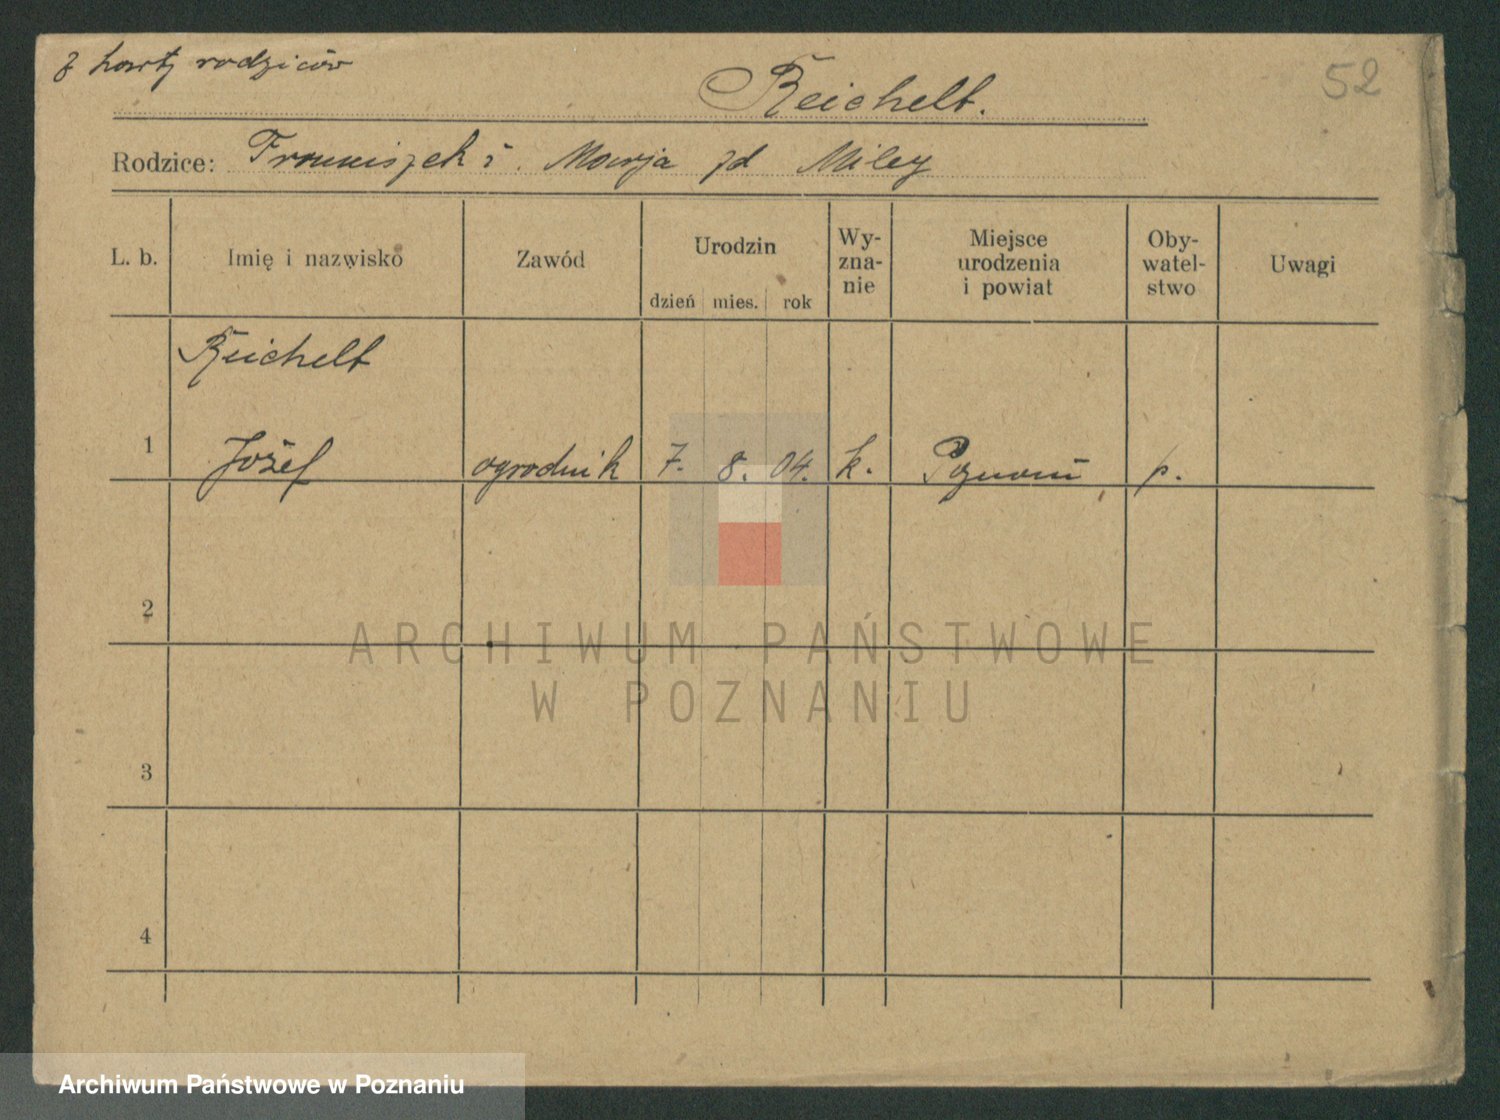 z karty rodziców
52
Reichelt.
Rodzice: Franciszek i Marja zd Miley
L. b.
Imię i nazwisko
Zawód
Urodzin
dzień mies. rok
Wy-
zna-
nie
Miejsce
urodzenia
i powiat
Oby-
watel-
stwo
Uwagi
Reichelt
1 Józef ogrodnik 7. 8. 04. k. Poznań p.
2
ARCHIWUM PAŃSTWOWE
W POZNANIU
3
4
Archiwum Państwowe w Poznaniu